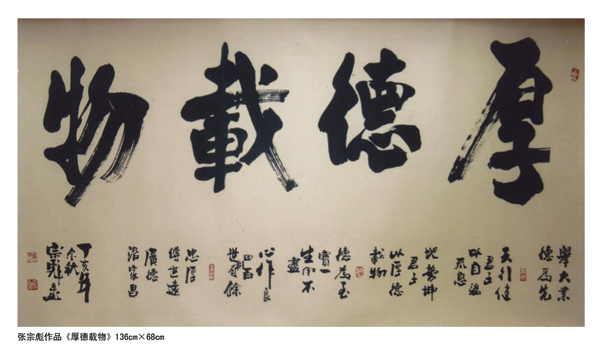 厚德載物
舉大業
德為先
天行健
君子
以自強
不息
地勢坤
君子
以厚德
載物
德為至
寶一
生用不
盡
心作良
田百
忠厚
傳世遠
治家昌
丁亥年
宗彪書
张宗彪作品《厚德载物》136cm×68cm